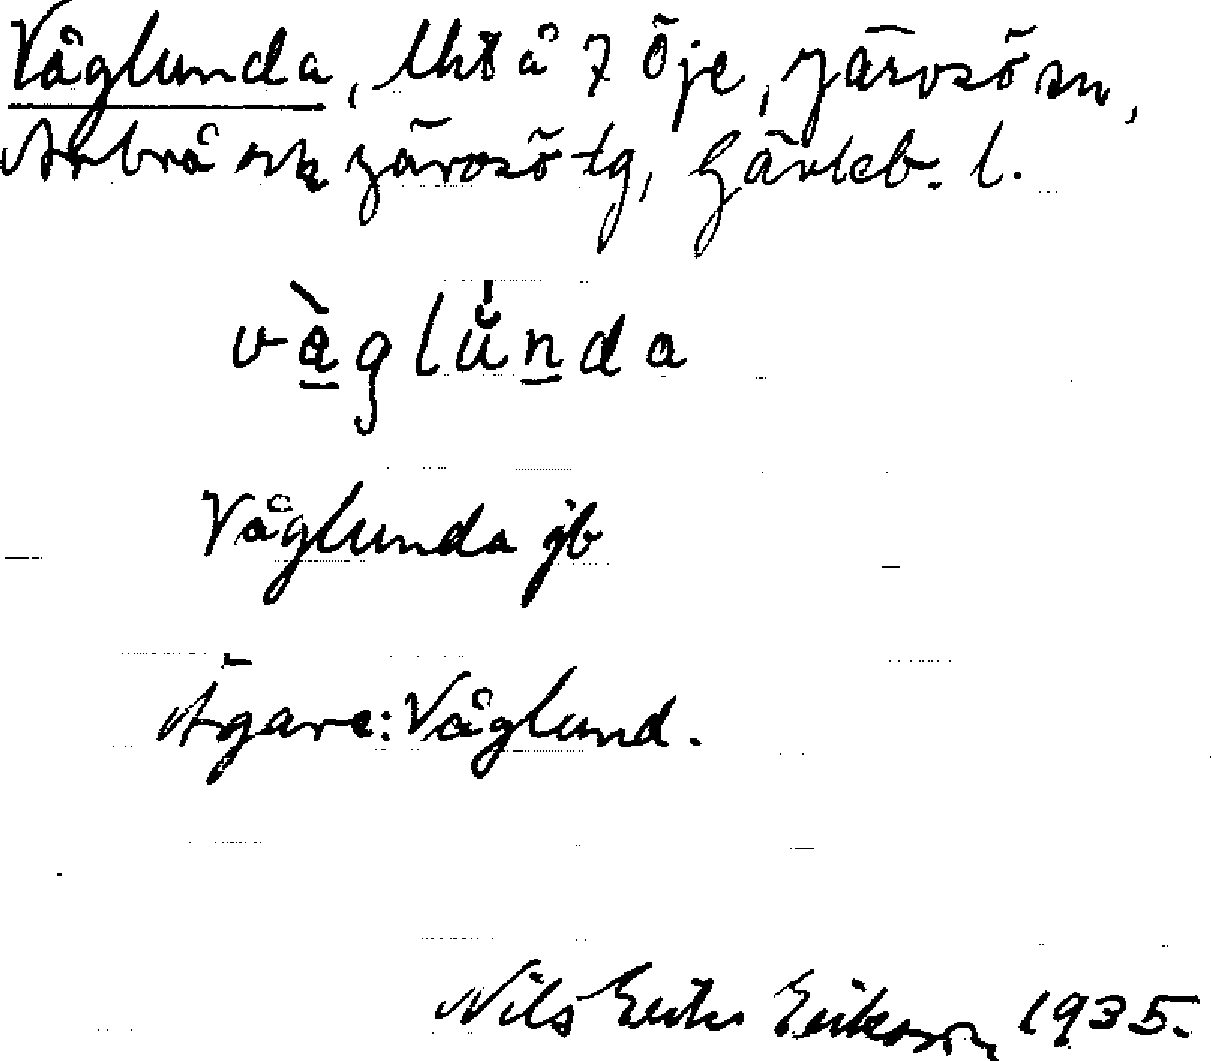 Våglunda, lht å 7 Öje, Järvsö sn,
Arbrå och Järvsö tg, Gävleb. l.
vàglúnda
Våglunda jb
Ägare: Våglund.
Nils Eriks Eriksson 1935.